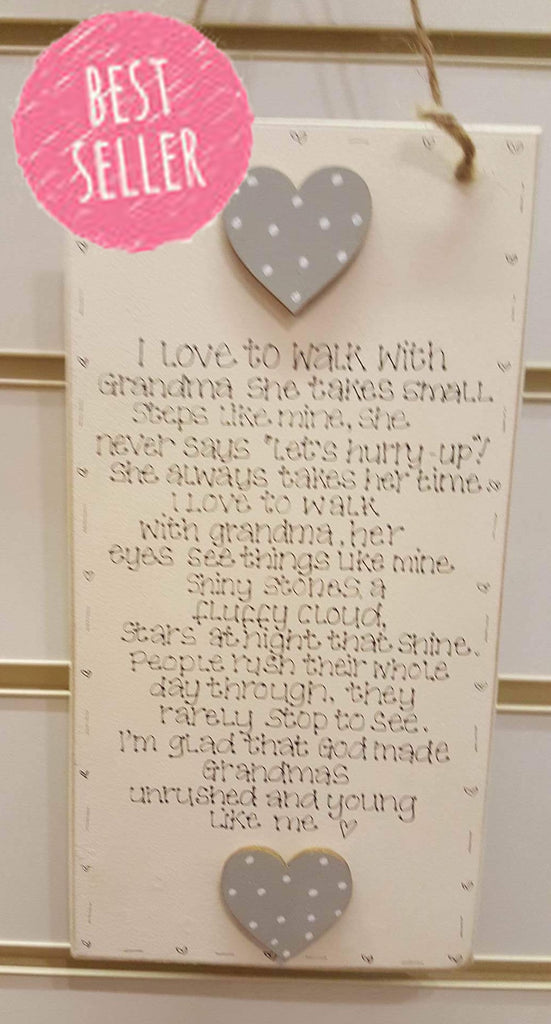 BEST
SELLER
I Love to walk with
Grandma she takes small
steps like mine, she
never says "Let's hurry-up"!
she always takes her time.
I Love to walk
with grandma, her
eyes see things like mine
shiny stones, a
fluffy cloud,
stars at night that shine.
People rush their whole
day through, they
rarely stop to see.
I'm glad that God made
Grandmas
unrushed and young
Like me